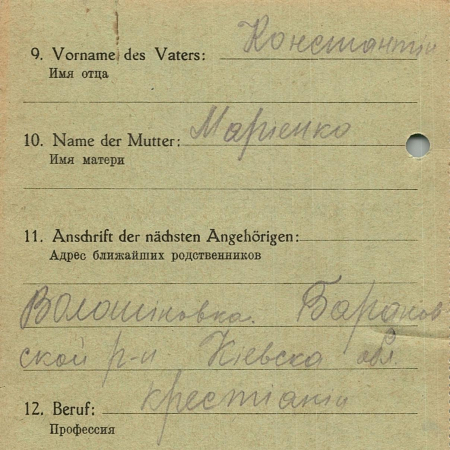 9. Vorname des Vaters: Константин
Имя отца
10. Name der Mutter: Марiенко
Имя матери
11. Anschrift der nächsten Angehörigen:
Адрес ближайших родственников
Волошiновка. Баранов
ской р-н Кiевска обл
12. Beruf: крестiанiн
Профессия